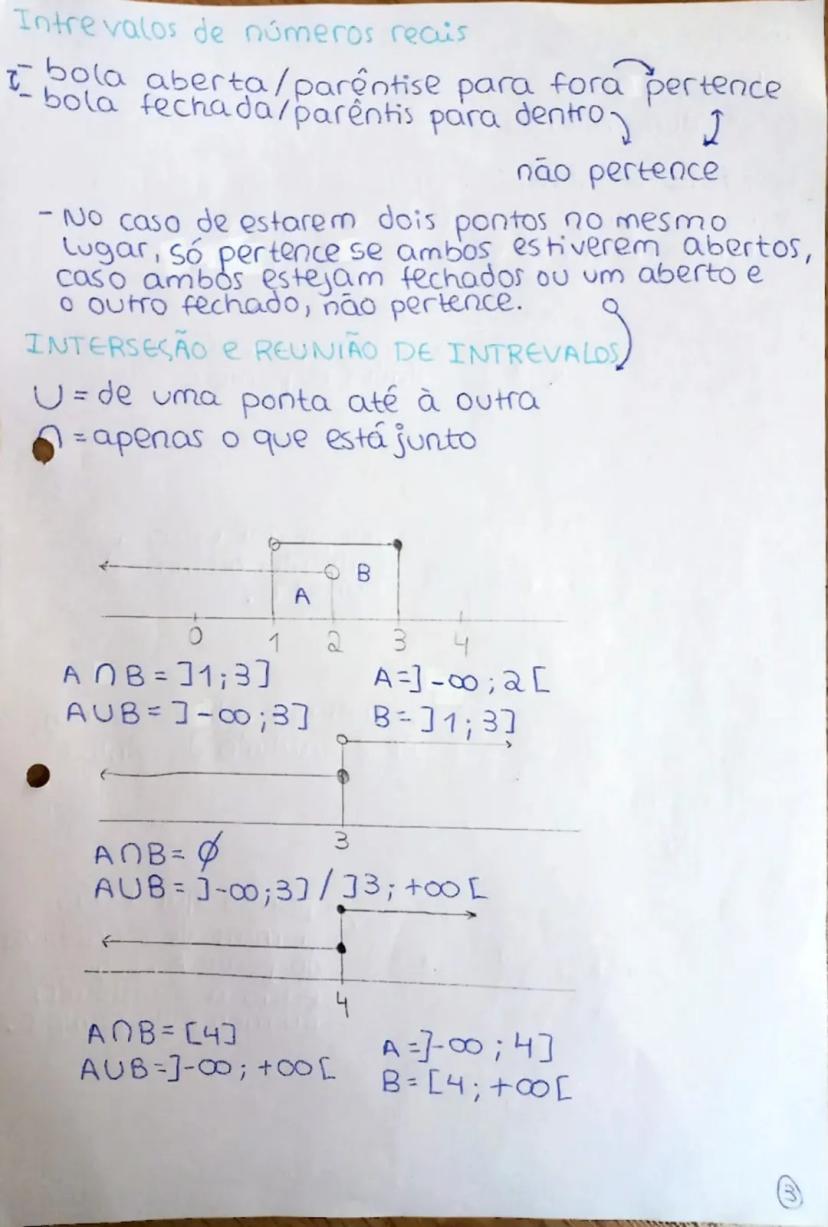 Intrevalos de números reais
- bola aberta/parêntise para fora pertence
- bola fechada/parêntis para dentro
não pertence
- No caso de estarem dois pontos no mesmo
lugar, só pertence se ambos estiverem abertos,
caso ambos estejam fechados ou um aberto e
o outro fechado, não pertence.
INTERSEÇÃO e REUNIÃO DE INTREVALOS
U = de uma ponta até à outra
∩ = apenas o que está junto
B
A
0 1 2 3 4
A∩B = ]1;3] A=]-∞;2[
A∪B = ]-∞;3] B=]1;3]
3
A∩B = ∅
A∪B = ]-∞;3]/]3;+∞[
4
A∩B = [4] A=]-∞;4]
A∪B=]-∞;+∞[ B=[4;+∞[
3